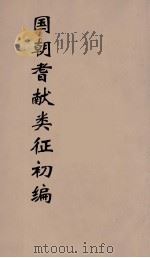 国朝耆献类征初编
www.toutu.com